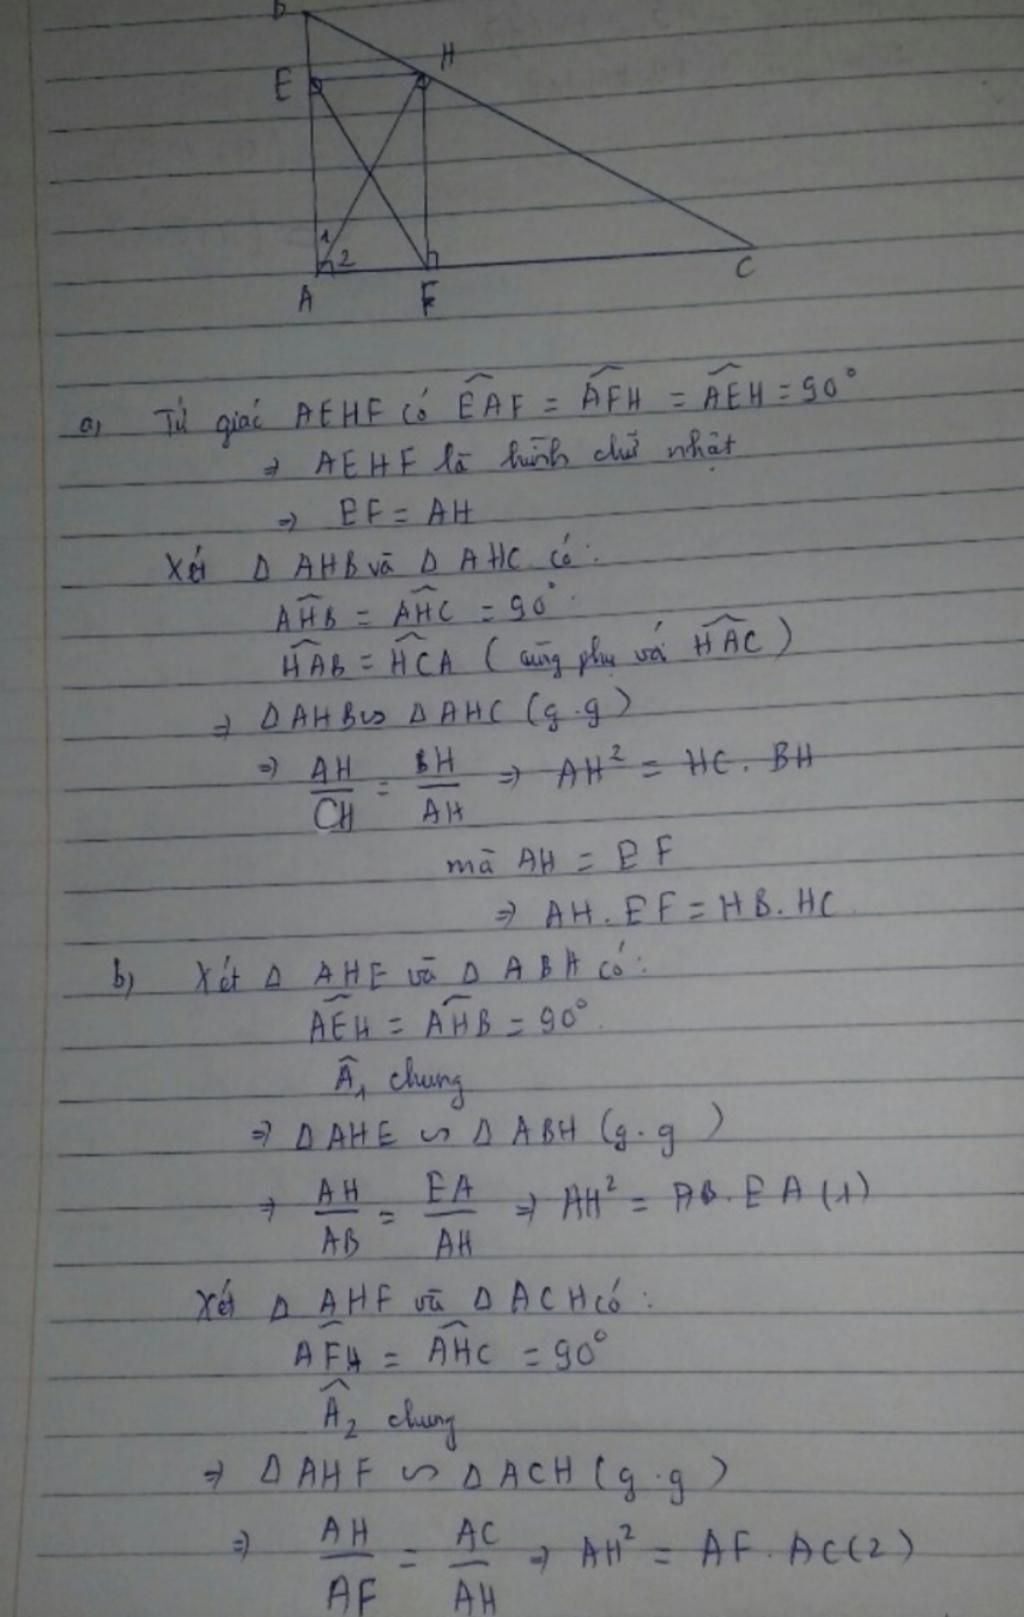 B
H
E
1
2
A
F
C
a, Tứ giác AEHF có \widehat{EAF} = \widehat{AFH} = \widehat{AEH} = 90°
⇒ AEHF là hình chữ nhật
⇒ EF = AH
Xét Δ AHB và Δ AHC có:
\widehat{AHB} = \widehat{AHC} = 90°.
\widehat{HAB} = \widehat{HCA} (cùng phụ với \widehat{HAC})
⇒ ΔAHB ∽ ΔAHC (g.g)
⇒ \frac{AH}{CH} = \frac{BH}{AH} ⇒ AH² = HC. BH
mà AH = EF
⇒ AH. EF = HB. HC
b, Xét Δ AHE và Δ ABH có:
\widehat{AEH} = \widehat{AHB} = 90°.
\widehat{A}₁ chung
⇒ ΔAHE ∽ ΔABH (g.g)
⇒ \frac{AH}{AB} = \frac{EA}{AH} ⇒ AH² = AB. EA (1)
Xét Δ AHF và Δ ACH có:
\widehat{AFH} = \widehat{AHC} = 90°
\widehat{A}₂ chung
⇒ ΔAHF ∽ ΔACH (g.g)
⇒ \frac{AH}{AF} = \frac{AC}{AH} ⇒ AH² = AF. AC (2)